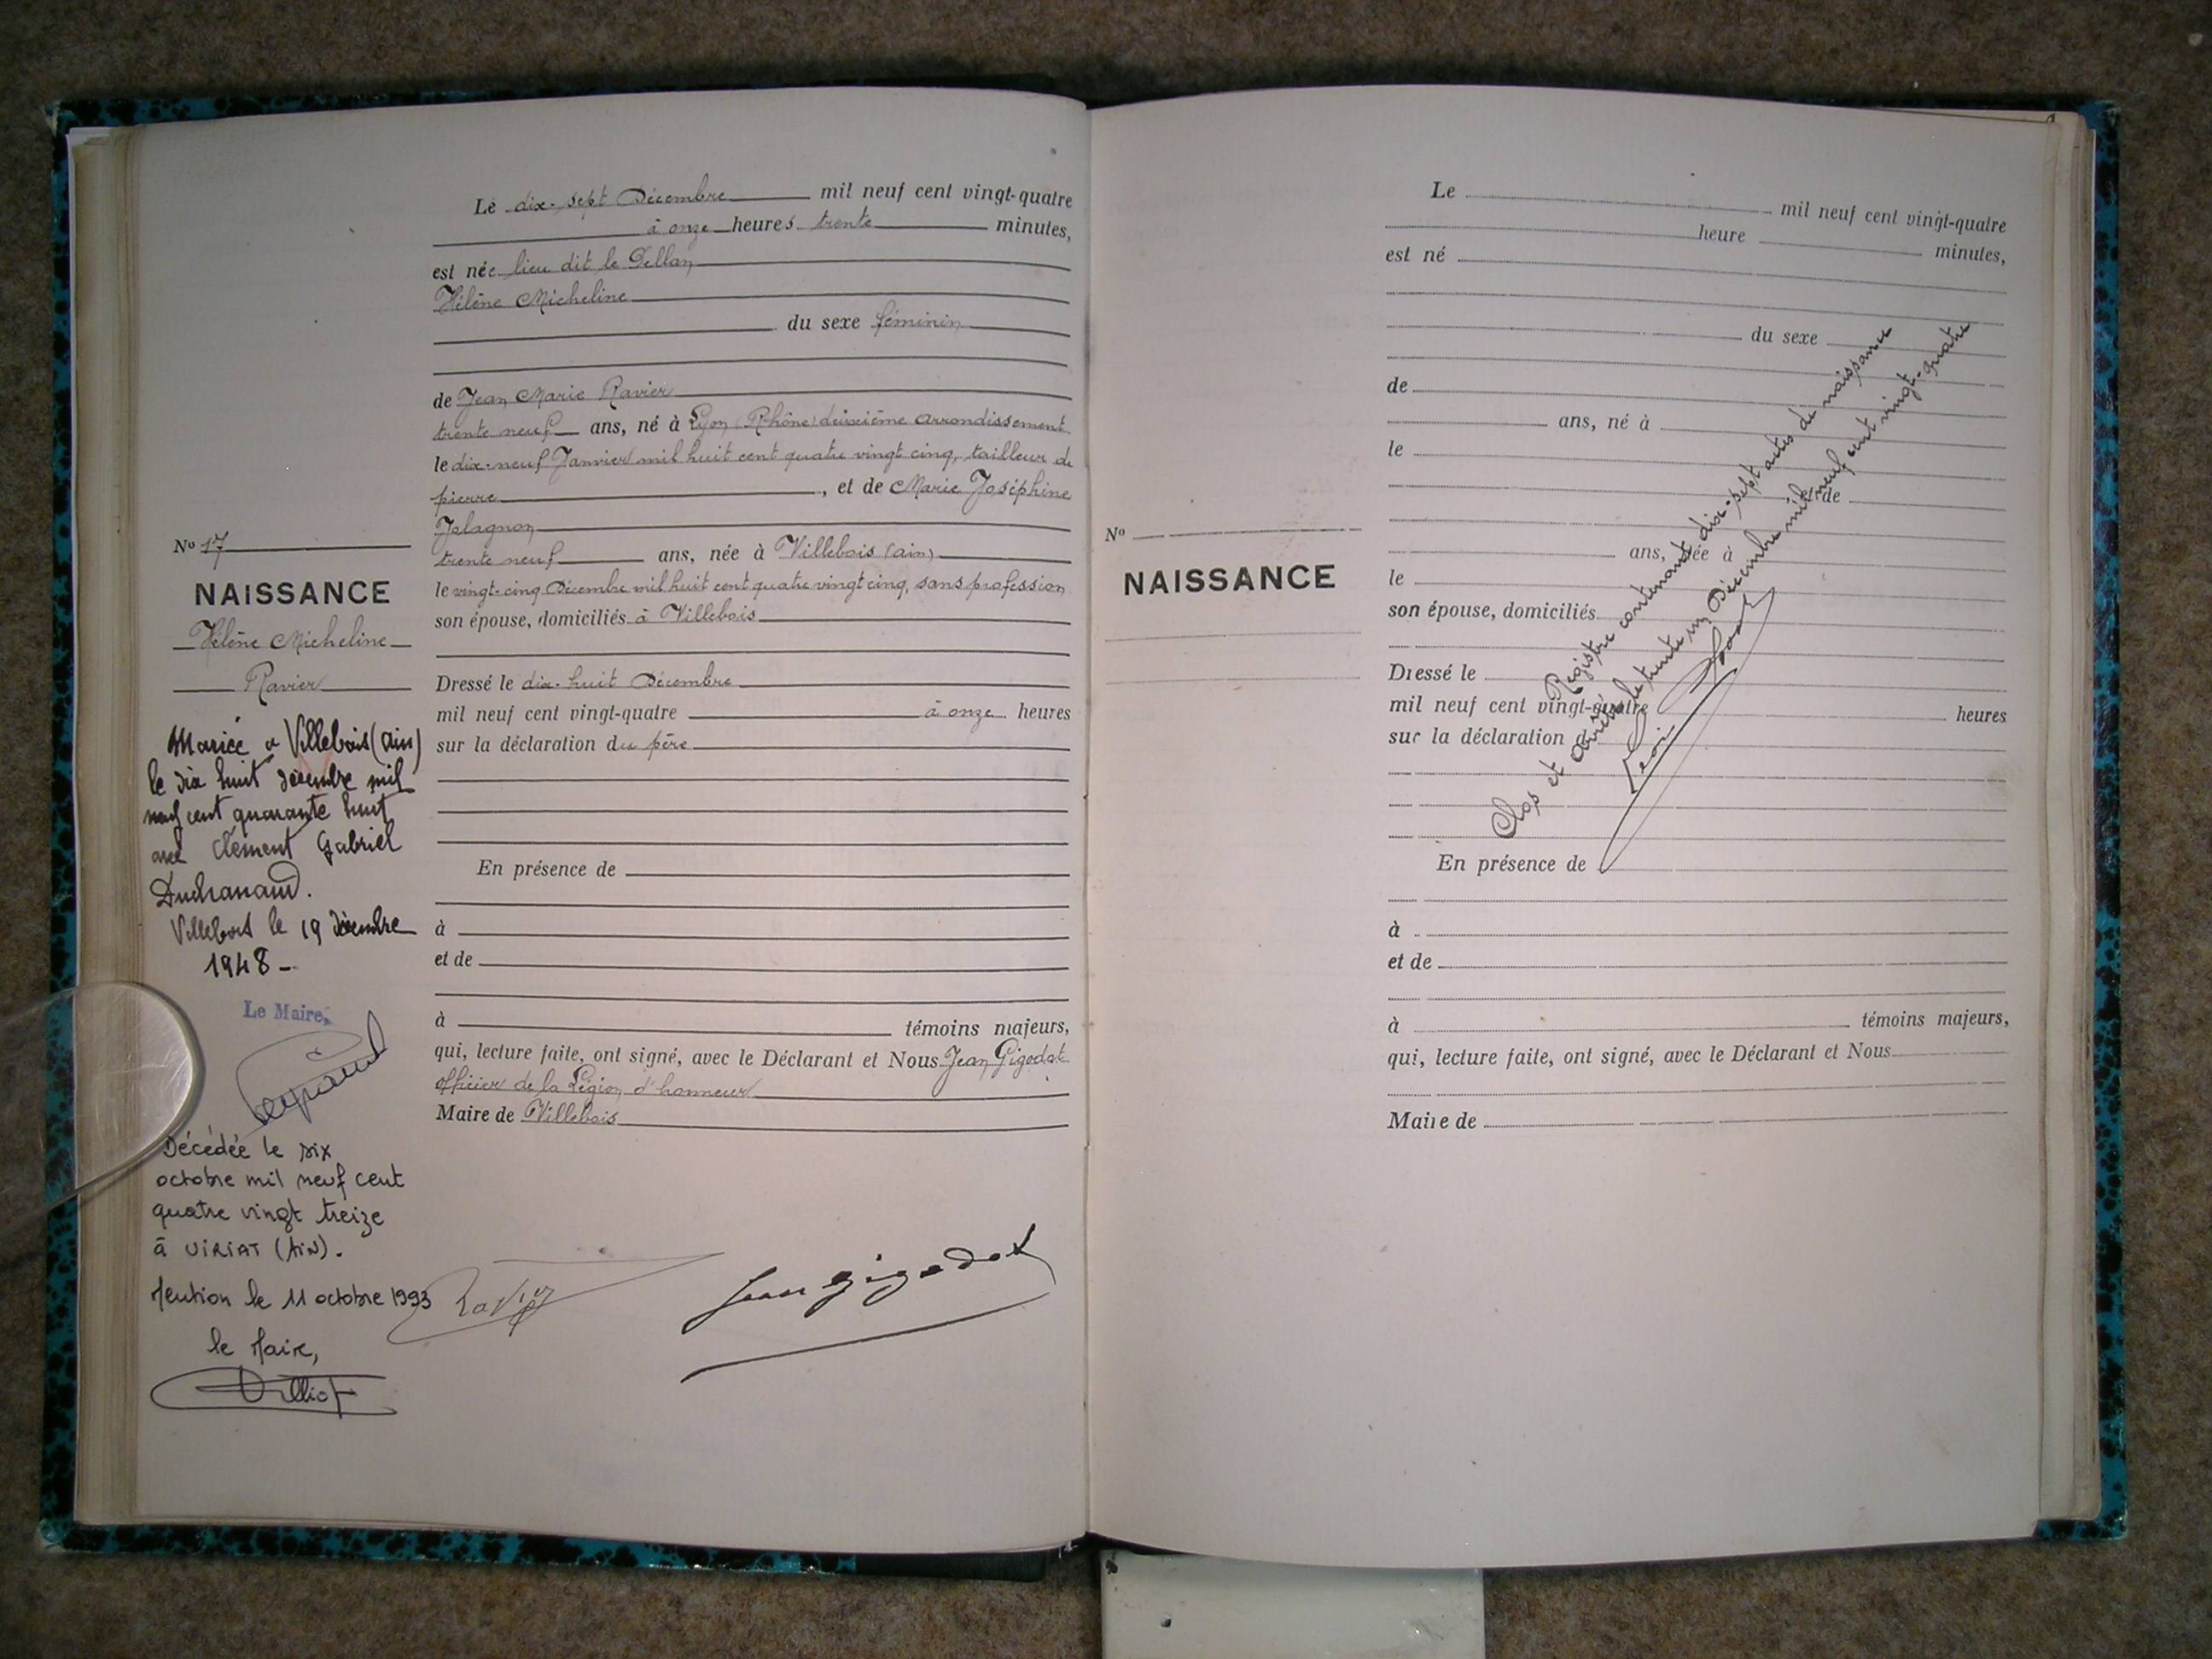 Le dix-sept Décembre mil neuf cent vingt-quatre
à onze heures trente minutes,
est née lieu dit le
Hélène Micheline
du sexe féminin
de Jean Marie Ravier
trente neuf ans, né à Lyon (Rhône) deuxième arrondissement
le dix-neuf Janvier mil huit cent quatre vingt cinq, tailleur de
pierre, et de Marie Joséphine
trente neuf ans, née à Villebois (ain)
le vingt-cinq Décembre mil huit cent quatre vingt cinq, sans profession
son épouse, domiciliés à Villebois
Dressé le dix-huit Décembre
mil neuf cent vingt-quatre à onze heures
sur la déclaration du père
En présence de
à
et de
à témoins majeurs,
qui, lecture faite, ont signé, avec le Déclarant et Nous Jean Gigodot
officier de la Légion d'honneur
Maire de Villebois
Ravier
Jean Gigodot
No 17
NAISSANCE
Hélène Micheline
Ravier
Mariée a Villebois (Ain)
le dix huit décembre mil
neuf cent quarante huit
avec Clément Gabriel
Villebois le 19 décembre
1948 -
Le Maire,
Décédée le six
octobre mil neuf cent
quatre vingt treize
à VIRIAT (AIN).
Mention le 11 octobre 1993
le Maire,
Le mil neuf cent vingt-quatre
heure minutes,
est né
du sexe
de
ans, né à
le
et de
ans, née à
le
son épouse, domiciliés
Dressé le
mil neuf cent vingt-quatre heures
sur la déclaration d
En présence de
à
et de
à témoins majeurs,
qui, lecture faite, ont signé, avec le Déclarant et Nous
Maire de
No
NAISSANCE
Registre contenant dix-sept actes de naissance
Clos et arrêté le trente un Décembre mil neuf cent vingt-quatre